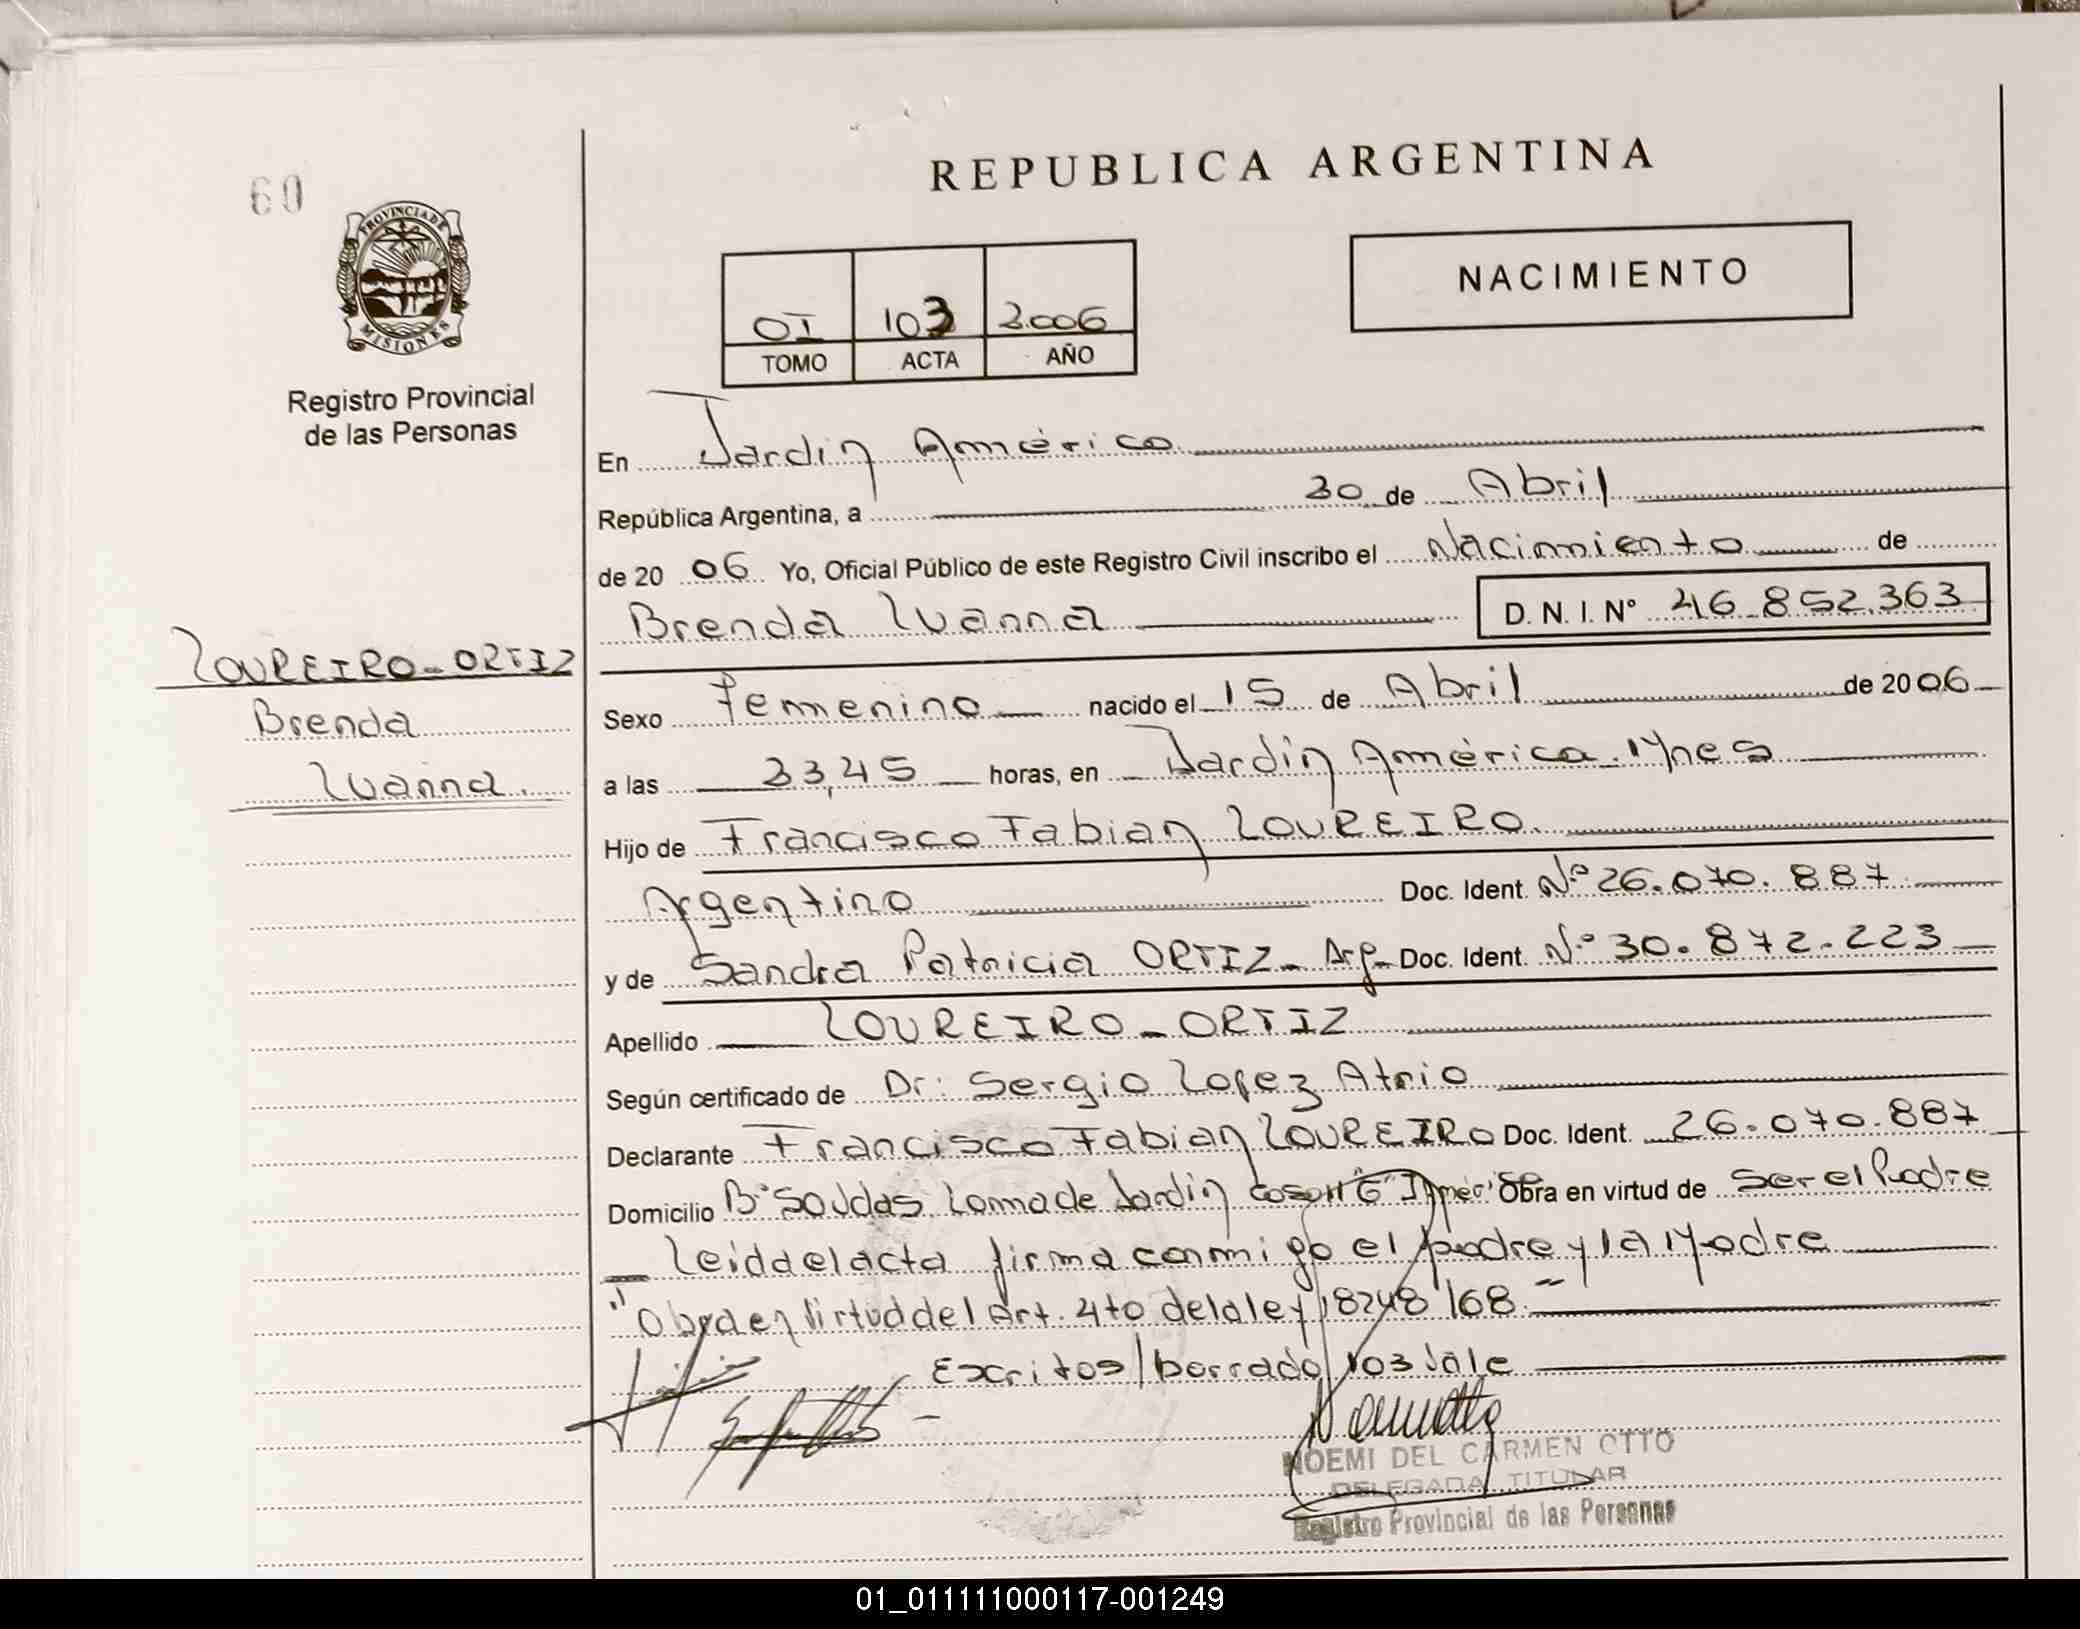 60
REPUBLICA ARGENTINA
PROVINCIA DE
MISIONES
Registro Provincial
de las Personas
NACIMIENTO
OI 103 2.006
TOMO ACTA AÑO
En Jardin América
República Argentina, a 20 de Abril
de 20 06 Yo, Oficial Público de este Registro Civil inscribo el Nacimiento de
Brenda Luanna D. N. I. N° 46.852.363
LOUREIRO-ORTIZ
Brenda
Luanna.
Sexo Femenino nacido el 15 de Abril de 2006
a las 23,45 horas, en Jardin América. Mnes
Hijo de Francisco Fabian LOUREIRO
Argentino Doc. Ident. N° 26.070.887
y de Sandra Patricia ORTIZ - Arg- Doc. Ident. N° 30.872.223
Apellido LOUREIRO - ORTIZ
Según certificado de Dr: Sergio Lopez Atrio
Declarante Francisco Fabian LOUREIRO Doc. Ident. 26.070.887
Domicilio Loma de Jardin Obra en virtud de Ser el Padre
Leidda el acta firma conmigo el padre y la Madre
"Obra en Virtud del Art. 4to de la ley 18248/68."
Escritos/borrado/103 Vale
NOEMI DEL CARMEN OTTO
DELEGADA TITULAR
Registro Provincial de las Personas
01_011111000117-001249